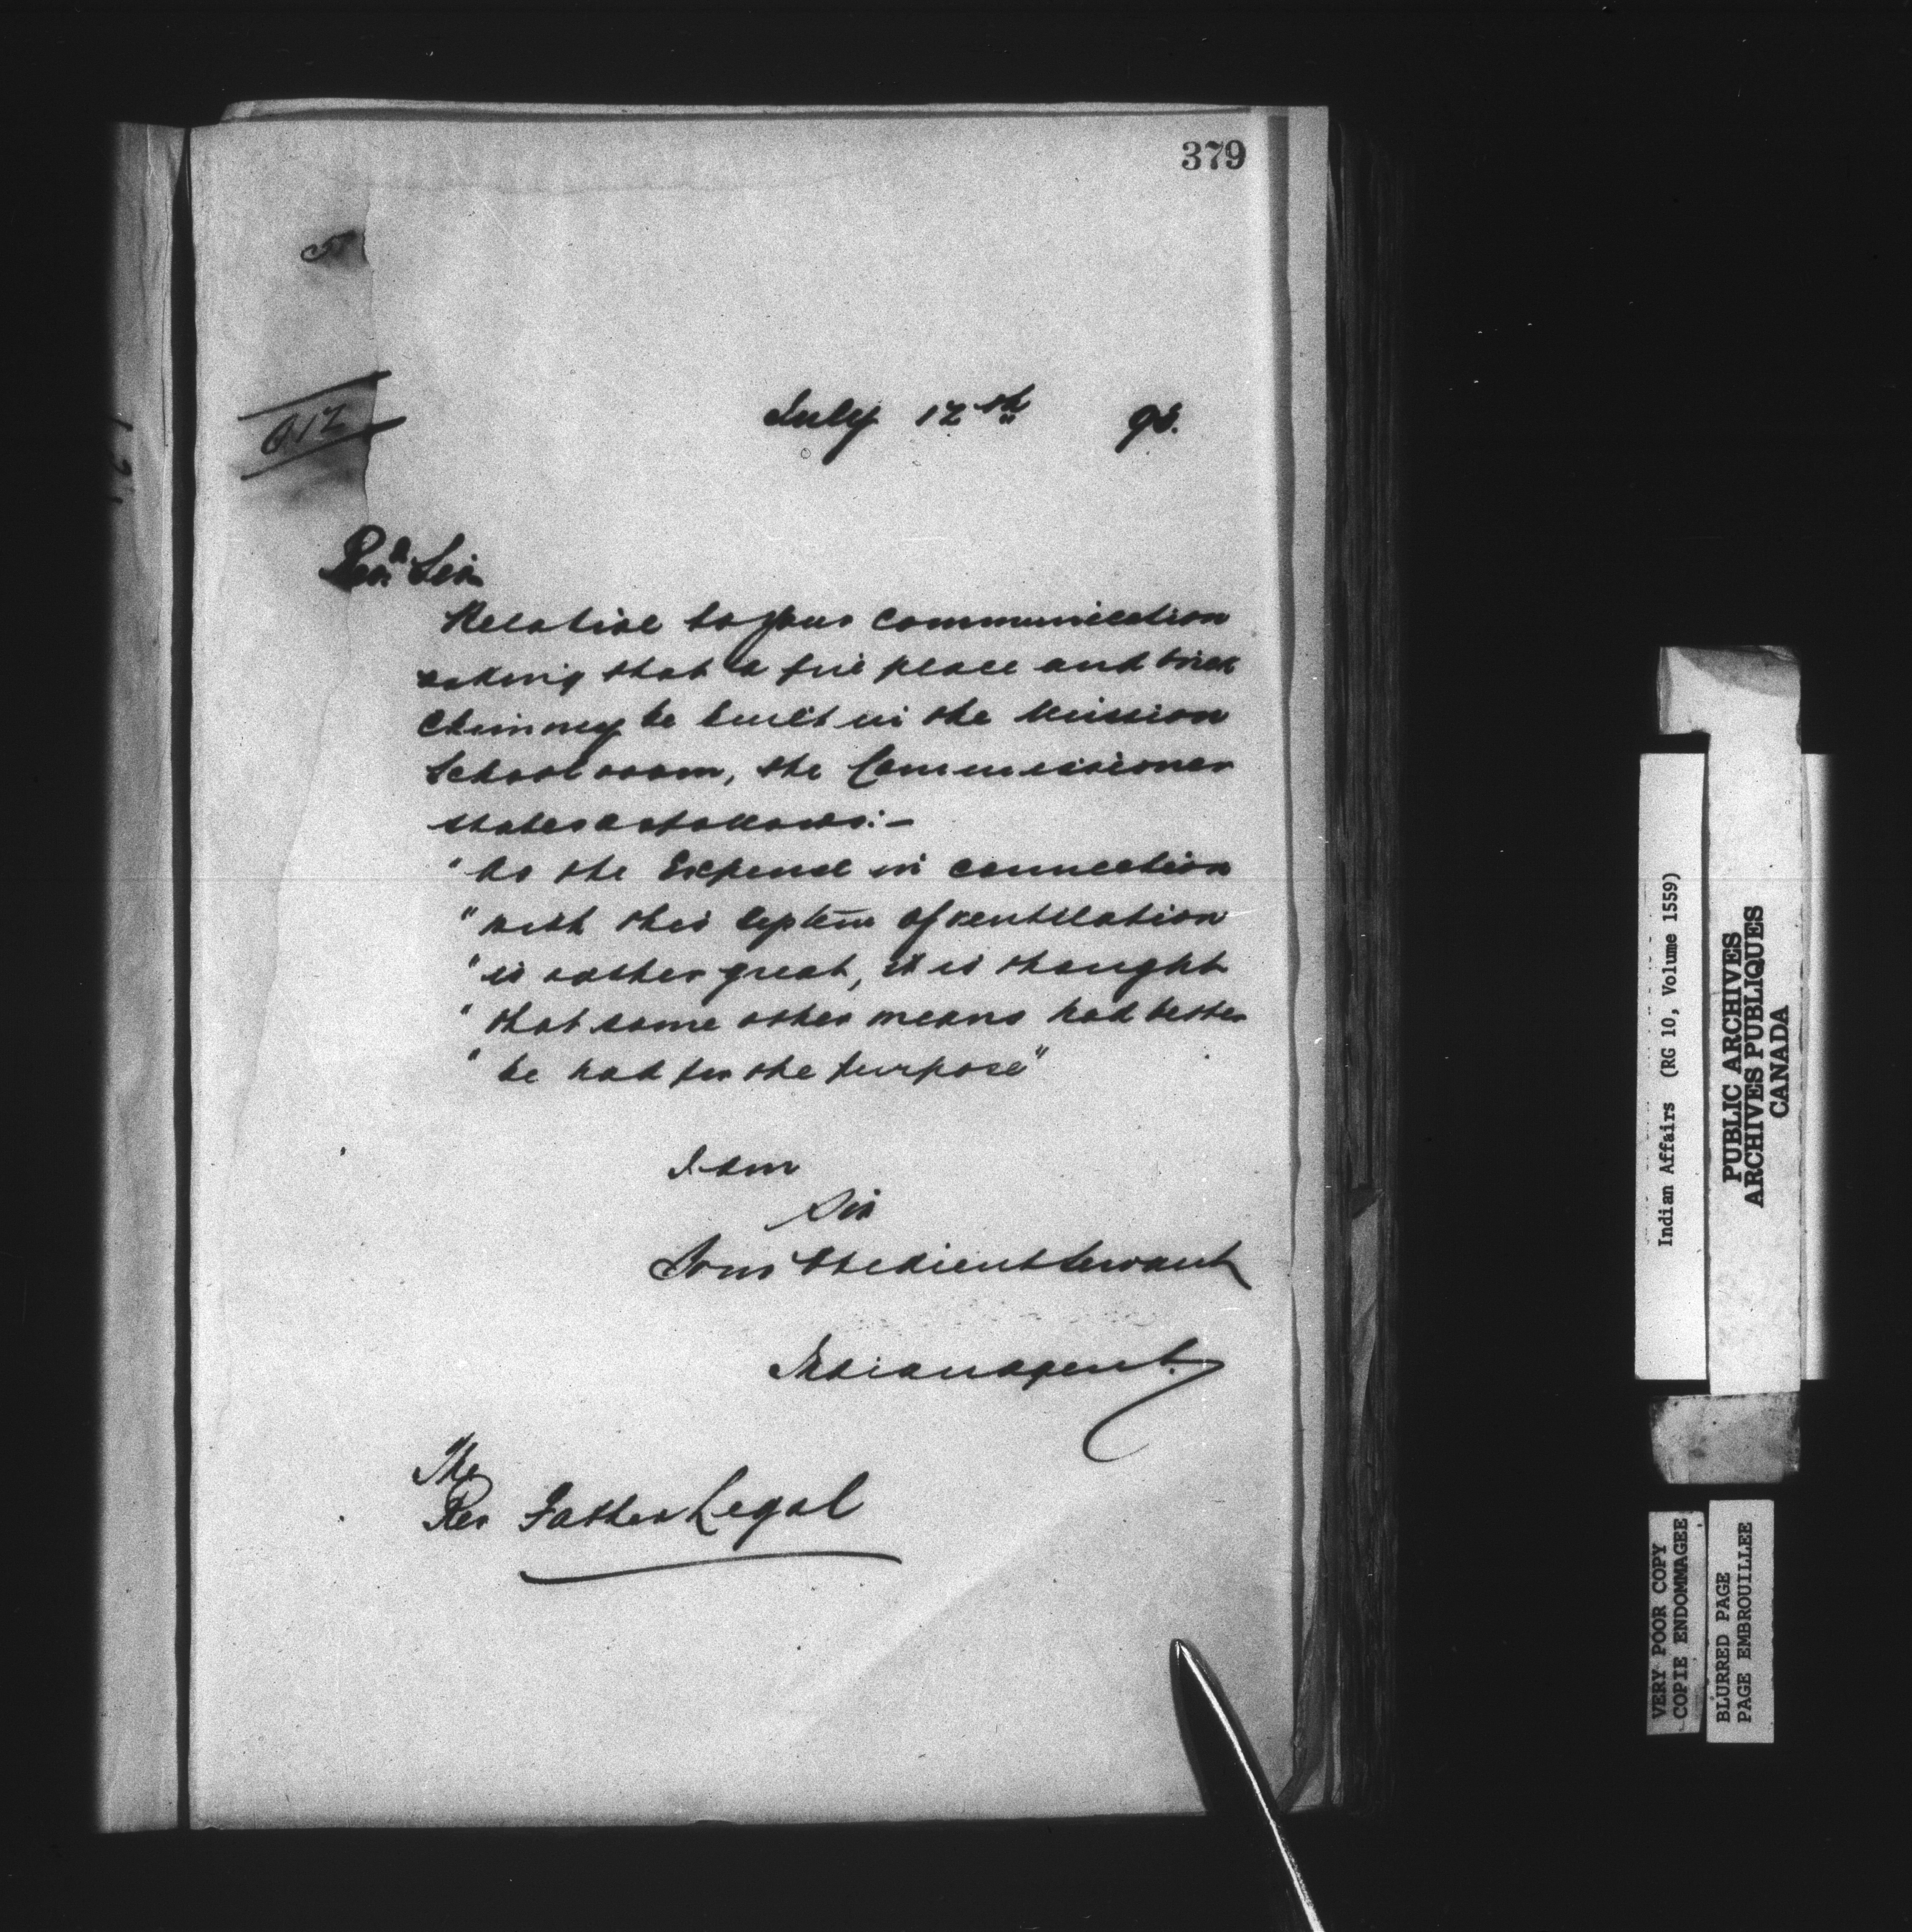 379
July 12th 90.
612
Revd Sir
Relative to your communication
asking that a fire place and brick
Chimney be built in the Mission
School room, the Commissioner
states as follows:-
"As the Expense in connection
"with this system of ventilation
"is rather great, it is thought
"that some other means had better
"be had for the purpose"
I am
Sir
Your Obedient Servant
Indian Agent.
The
Rev Father Legal
Indian Affairs (RG 10, Volume 1559)
PUBLIC ARCHIVES
ARCHIVES PUBLIQUES
CANADA
VERY POOR COPY
COPIE ENDOMMAGEE
BLURRED PAGE
PAGE EMBROUILLEE